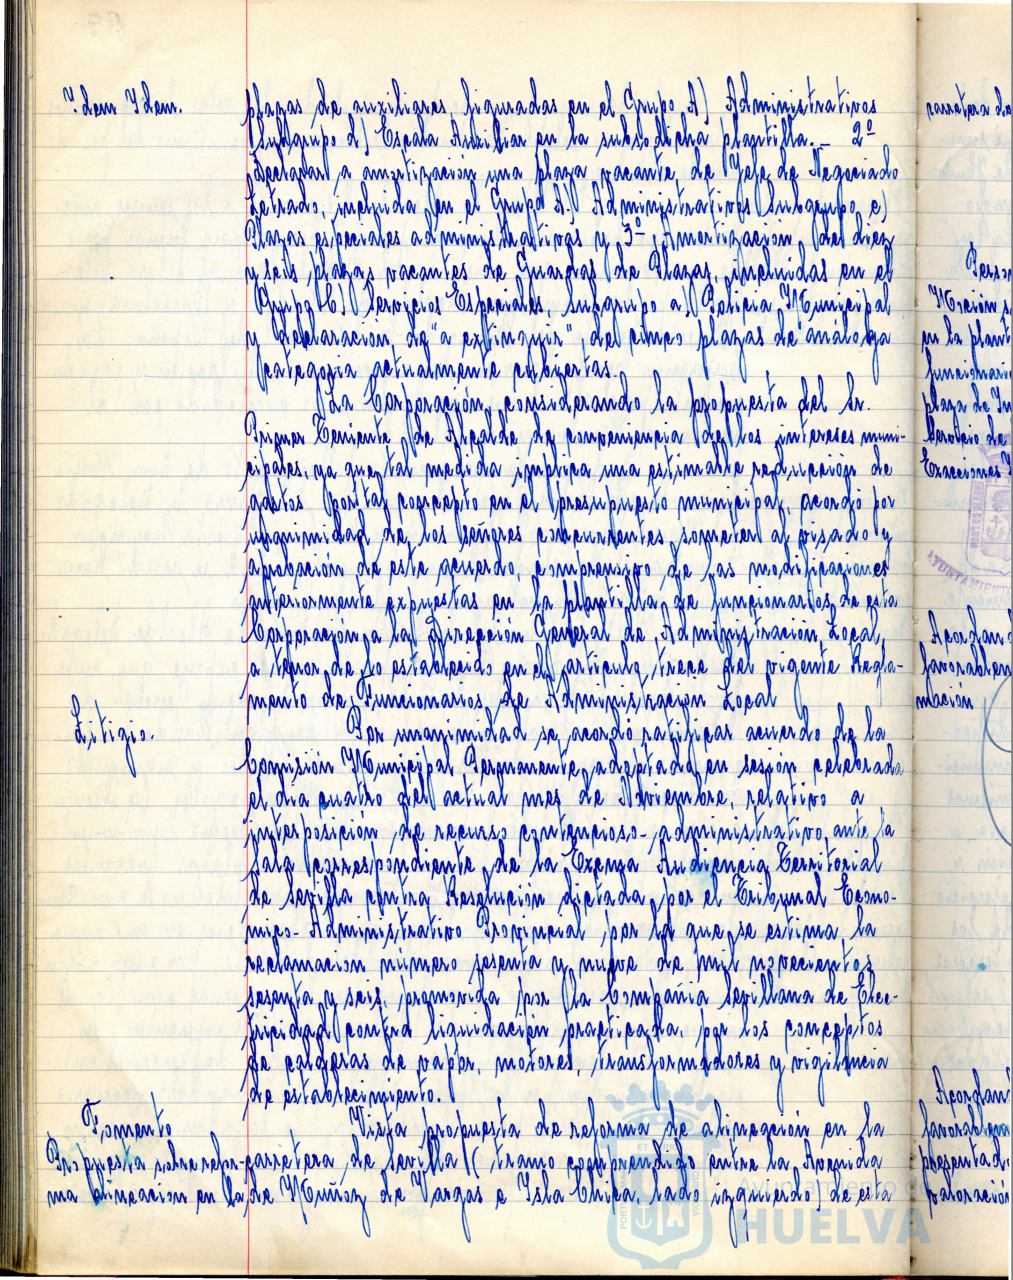 Idem Idem.
plazas de auxiliares, figuradas en el Grupo A) Administrativos
Subgrupo d) Escala Auxiliar en la susodicha plantilla. - 2º
Declarar a amortización una plaza vacante de Jefe de Negociado
Letrado, incluida en el Grupo A) Administrativos Subgrupo c)
Plazas especiales administrativas y 3º Amortización del diez
y seis plazas vacantes de Guardas de Plazas, incluidas en el
Grupo C) Servicios Especiales, subgrupo a) Policia Municipal
y declaración de "a extinguir" de cinco plazas de análoga
categoria actualmente cubiertas.
La Corporación, considerando la propuesta del Sr.
Primer Teniente de Alcalde de conveniencia de los intereses muni-
cipales, ya que tal medida implica una estimable reducción de
gastos por tal concepto en el presupuesto municipal, acordó por
unanimidad de los señores concurrentes, someter al visado y
aprobación de este acuerdo, comprensivo de las modificaciones
anteriormente expuestas en la plantilla de funcionarios de esta
Corporación, a la Dirección General de Administración Local,
a tenor de lo establecido en el artículo trece del vigente Regla-
mento de Funcionarios de Administración Local
Litigio.
Por unanimidad se acordó ratificar acuerdo de la
Comisión Municipal Permanente, adoptado en sesión celebrada
el dia cuatro del actual mes de Noviembre, relativo a
interposición de recurso contencioso-administrativo, ante la
Sala correspondiente de la Excma Audiencia Territorial
de Sevilla contra Resolución dictada por el Tribunal Econo-
mico-Administrativo Provincial, por la que se estima la
reclamacion número sesenta y nueve de mil novecientos
sesenta y seis, promovida por la Compañia Sevillana de Elec-
tricidad contra liquidación practicada, por los conceptos
de calderas de vapor, motores, transformadores y vigilancia
de establecimiento.
Fomento
Propuesta sobre refor-
ma alineacion en la
Vista propuesta de reforma de alineación en la
carretera de Sevilla (tramo comprendido entre la Avenida
de Muñoz de Vargas e Isla Chica, lado izquierdo de esta
carretera de
Moción s
en la plant
funcionario
plaza de In
Servicio de
Exacciones
AYUNTAMIENTO
Acordan
favorablem
mación
Acordan
favorablem
presentad
valoración
Ayuntamiento de
HUELVA